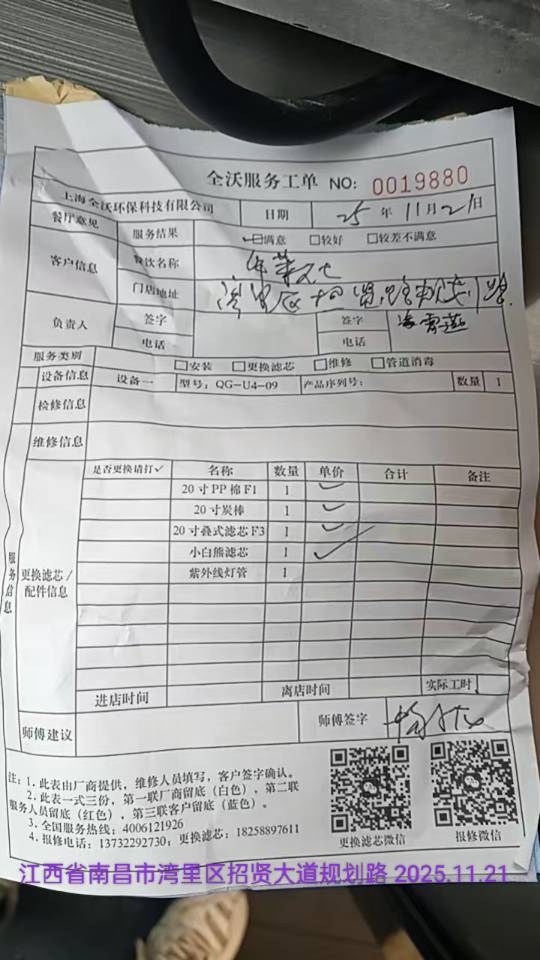 全沃服务工单 NO: 0019880
上海全沃环保科技有限公司 日期 25 年 11 月 21 日
餐厅意见 服务结果 满意 较好 较差不满意
客户信息 餐饮名称
门店地址 湾里区招贤
负责人 签字 签字
电话 电话
服务类别 安装 更换滤芯 维修 管道消毒
设备信息 设备一 型号: QG-U4-09 产品序列号: 数量 1
检修信息
维修信息
服务信息
更换滤芯/配件信息
是否更换请打✓ 名称 数量 单价 合计 备注
20寸PP棉F1 1 ✓
20寸炭棒 1 ✓
20寸叠式滤芯F3 1 ✓
小白熊滤芯 1 ✓
紫外线灯管 1
进店时间 离店时间 实际工时
师傅建议 师傅签字
注: 1. 此表由厂商提供，维修人员填写，客户签字确认。
2. 此表一式三份，第一联厂商留底（白色），第二联
服务人员留底（红色），第三联客户留底（蓝色）。
3. 全国服务热线: 4006121926
4. 报修电话: 13732292730; 更换滤芯: 18258897611
更换滤芯微信 报修微信
江西省南昌市湾里区招贤大道规划路 2025.11.21